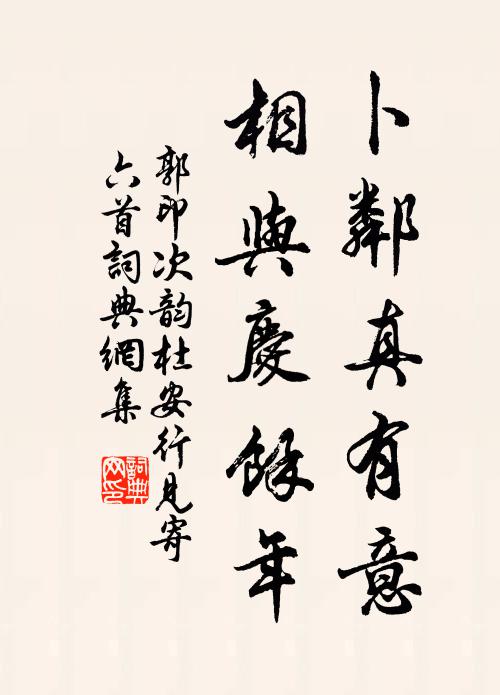 卜鄰真有意
相與慶餘年
郭印次韵杜安行見寄
六首詞典網集
詞典
网印